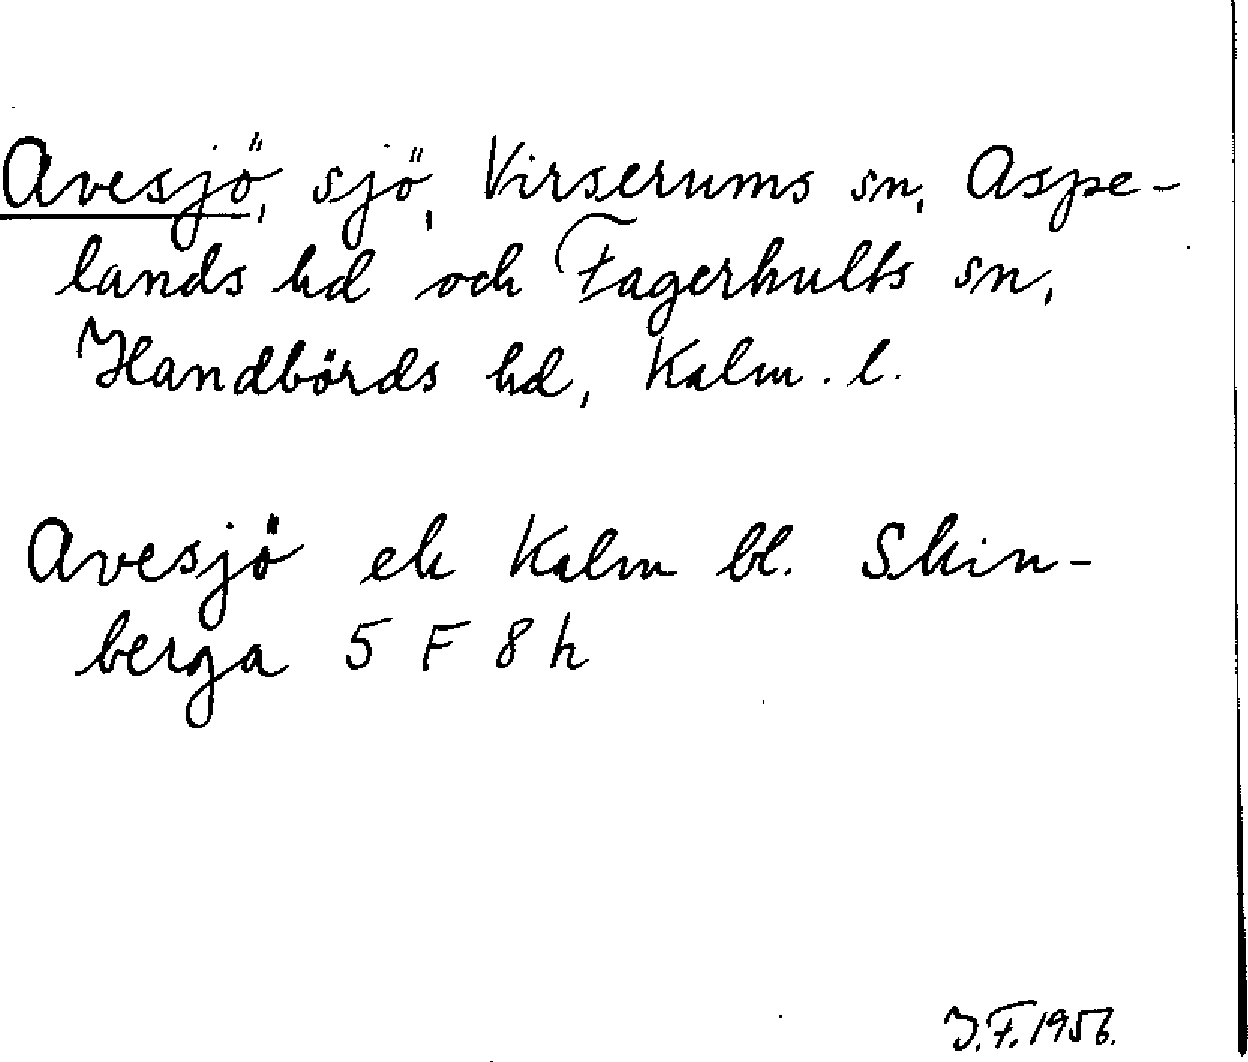 Avesjö, sjö, Virserums sn, Aspe-
lands hd och Fagerhults sn,
Handbörds hd, Kalm. l.
Avesjö ek Kalm bl. Skin-
berga 5 F 8 h
J.F. 1956.